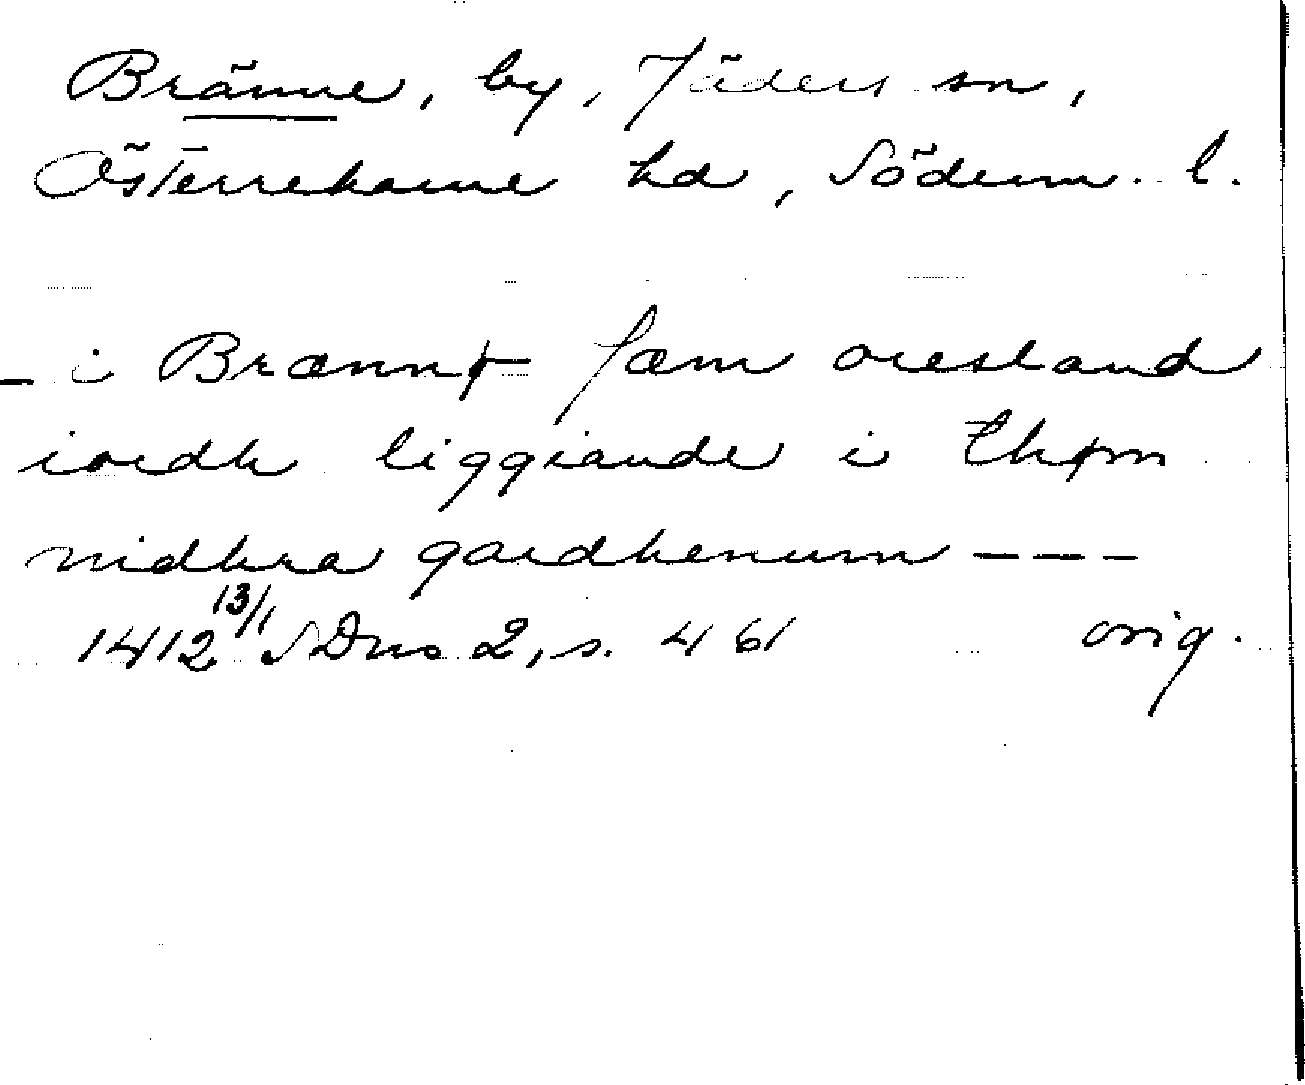 Bränne, by, Jäders sn,
Österrekarne hd, Söderm. l.
– i Brænnø fæm øresland
iordh liggiande i thøm
nidhra gardhenum ---
1412 13/1 SDns 2, s. 461 orig.